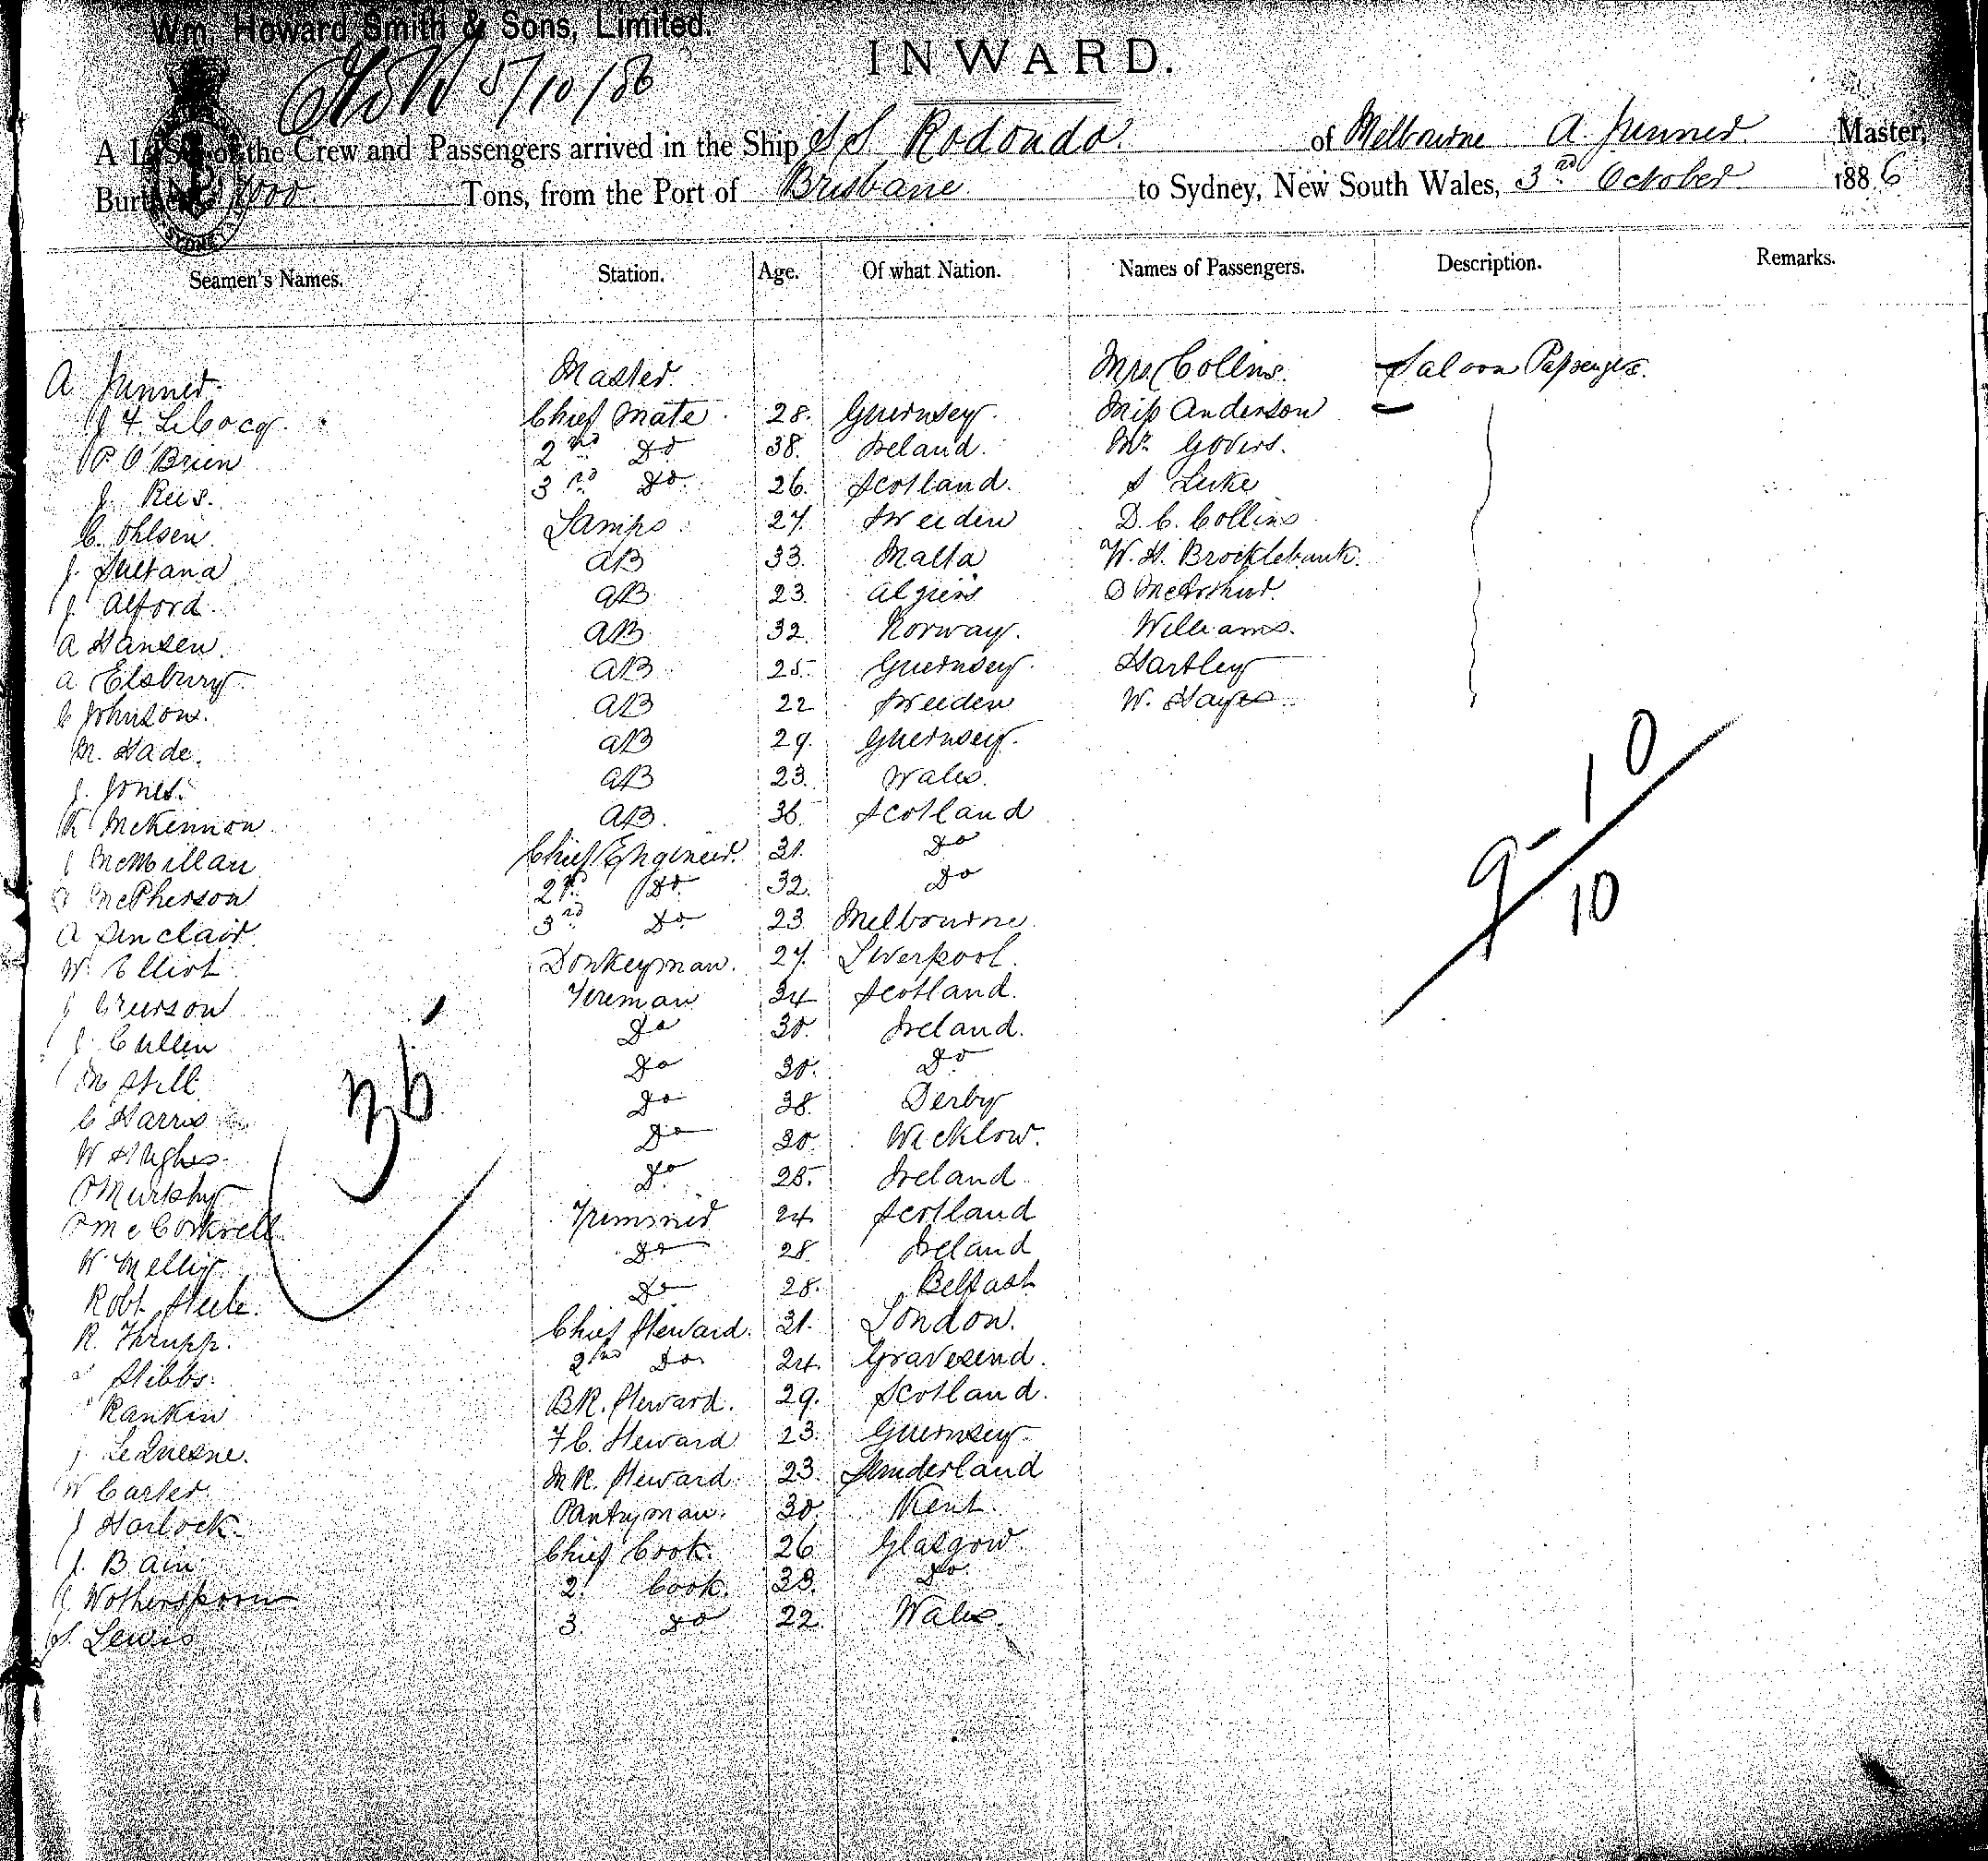 Wm. Howard Smith & Sons, Limited.
INWARD.
5/10/86
A List of the Crew and Passengers arrived in the Ship S.S. Rodondo. of Melbourne A. Junner. Master,
Burthen 1000 Tons, from the Port of Brisbane to Sydney, New South Wales, 3rd October 1886
Seamen's Names. Station. Age. Of what Nation. Names of Passengers. Description. Remarks.
A Junner. Master. Mrs Collins. Saloon Passengers.
J F LeCocq. Chief Mate. 28. Guernsey. Miss Anderson
P O'Brien 2nd Do 38. Ireland. Mr Govers.
J. Rees. 3rd Do. 26. Scotland. S Luke
C. Ohlsen. Lamps. 27. Sweeden D. C. Collins
J. Sultana AB 33. Malta W. H. Brocklebank.
J. Alford. AB 23. Algiers D McArthur.
A Hansen. AB 32. Norway. Williams.
A Elsbury AB 25. Guernsey. Hartley
C Johnson. AB 22 Sweeden W. Hayes
M. Hade. AB 29. Guernsey.
J. Jones. AB 23. Wales.
K McKinnon AB. 36. Scotland
J McMillan Chief Engineer. 31. Do
D McPherson 2nd Do 32. Do
A Sinclair. 3rd Do. 23 Melbourne
W. Elliot. Donkeyman. 27. Liverpool.
J Grierson Fireman 34 Scotland.
J. Cullen Do 30. Ireland.
M Still Do 30. Do
C Harris Do 38. Derby
W Hughes. Do 30. Wicklow.
P Murphy Do. 25. Ireland
McCorkell Trimmer 24 Scotland
W. Melley Do 28 Ireland
Robt Steele. Do 28. Belfast
R. Thrupp. Chief Steward. 31. London.
Stibbs. 2nd Do 24. Gravesend.
Rankin BR. Steward. 29. Scotland.
J. LeQuesne. F C. Steward 23. Guernsey.
W Carter. M R. Steward. 23. Sunderland
J Harlock. Pantryman. 30. Kent.
J. Bain. Chief Cook. 26 Glasgow.
J Wotherspoon 2. Cook. 33. Do.
S. Lewis 3. Do 22. Wales.
36
9-10
10